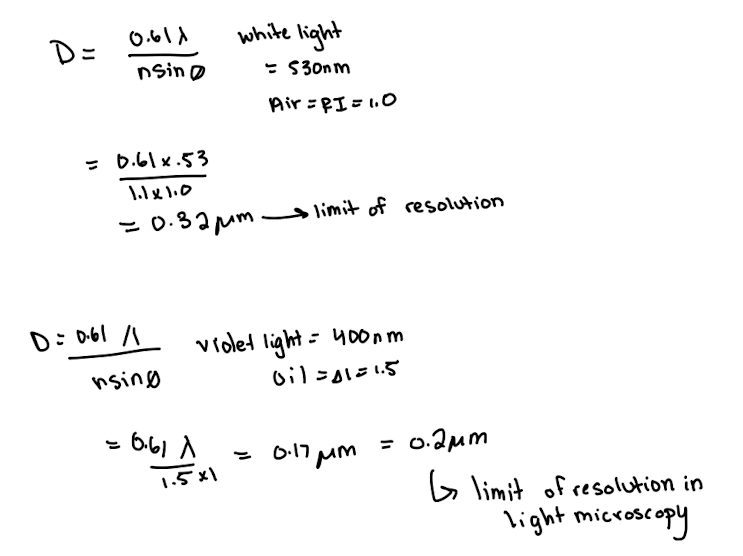 D = 0.61λ / nsinØ white light
= 530nm
Air = RI = 1.0
= 0.61 x .53 / 1.1 x 1.0
= 0.32 µm → limit of resolution
D = 0.61 λ / nsinØ violet light = 400nm
oil = ΔI = 1.5
= 0.61 λ / 1.5 x 1 = 0.17 µm = 0.2 µm
↳ limit of resolution in
light microscopy